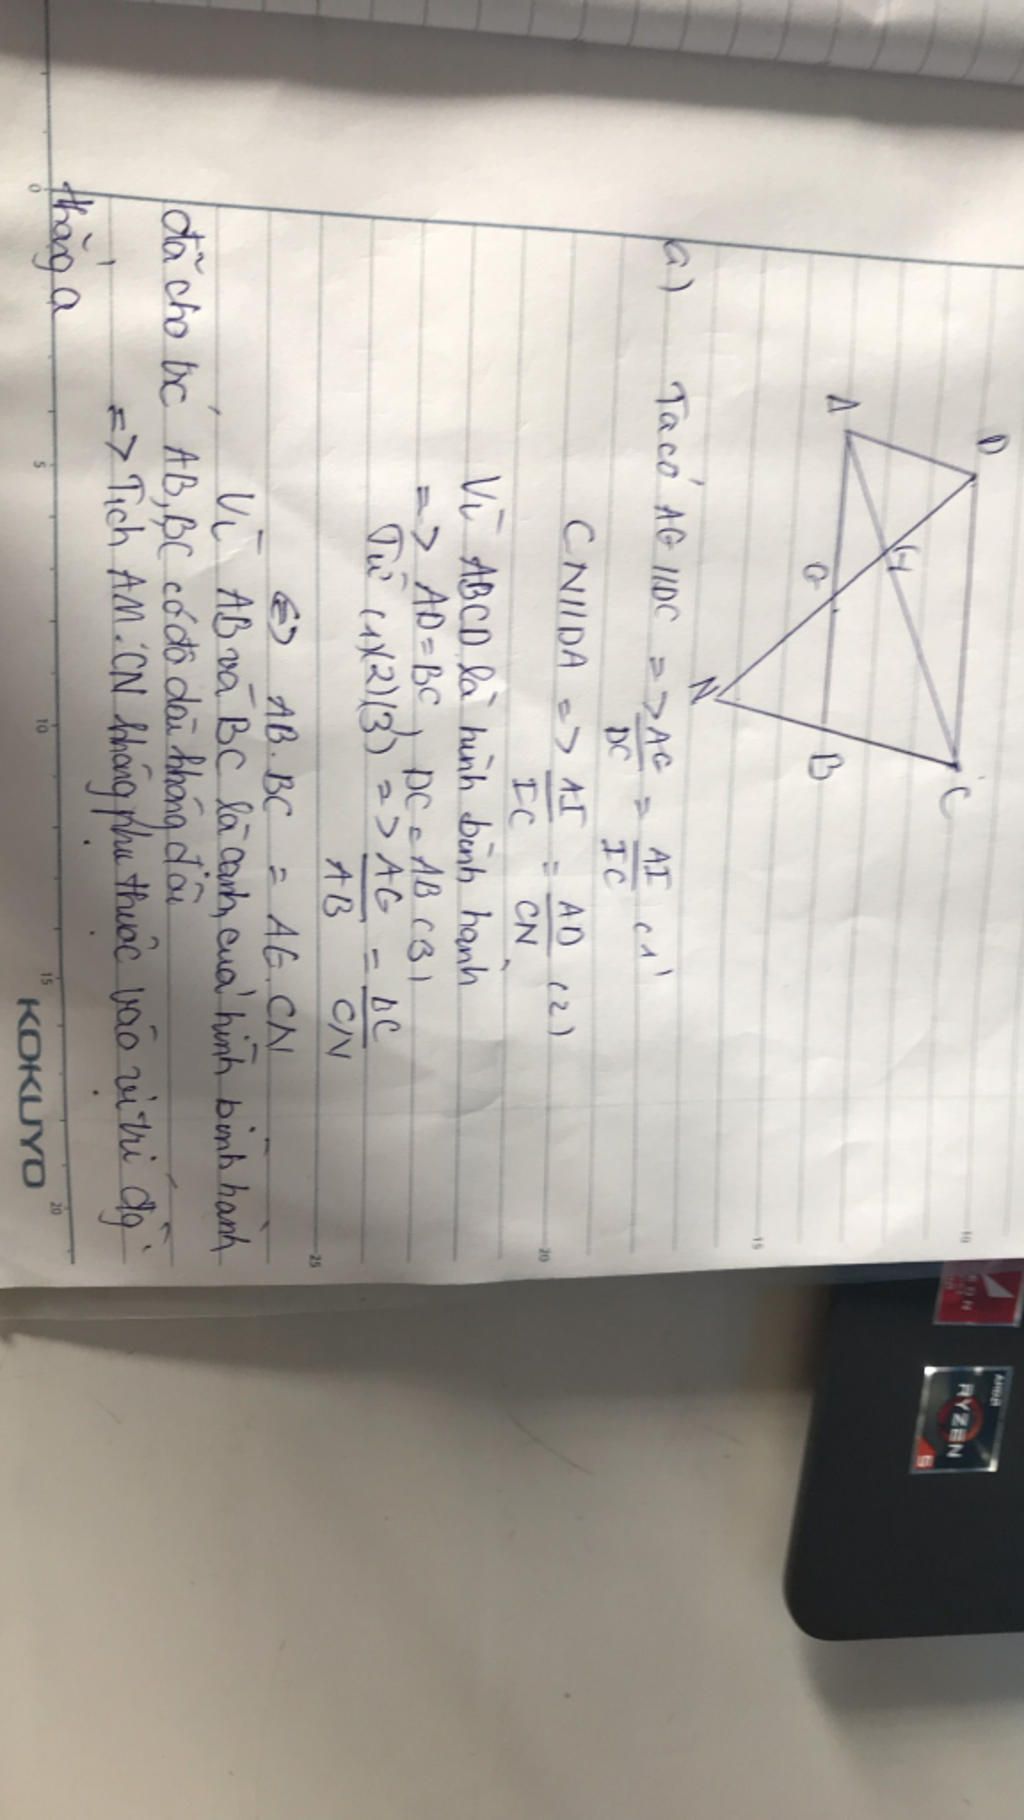 D
C
A
H
G
B
N
a) Ta có AG // DC => AG/DC = AI/IC (1)
CN // DA => AI/IC = AD/CN (2)
Vì ABCD là hình bình hành
=> AD = BC, DC = AB (3)
Từ (1)(2)(3) => AG/AB = BC/CN
<=> AB.BC = AG.CN
Vì AB và BC là cạnh của hình bình hành
đã cho trc AB, BC có độ dài không đổi
=> Tích AM.CN không phụ thuộc vào vị trí đg
thẳng a
0 5 10 15 20
KOKUYO
10
15
20
25
AMD
RYZEN
5